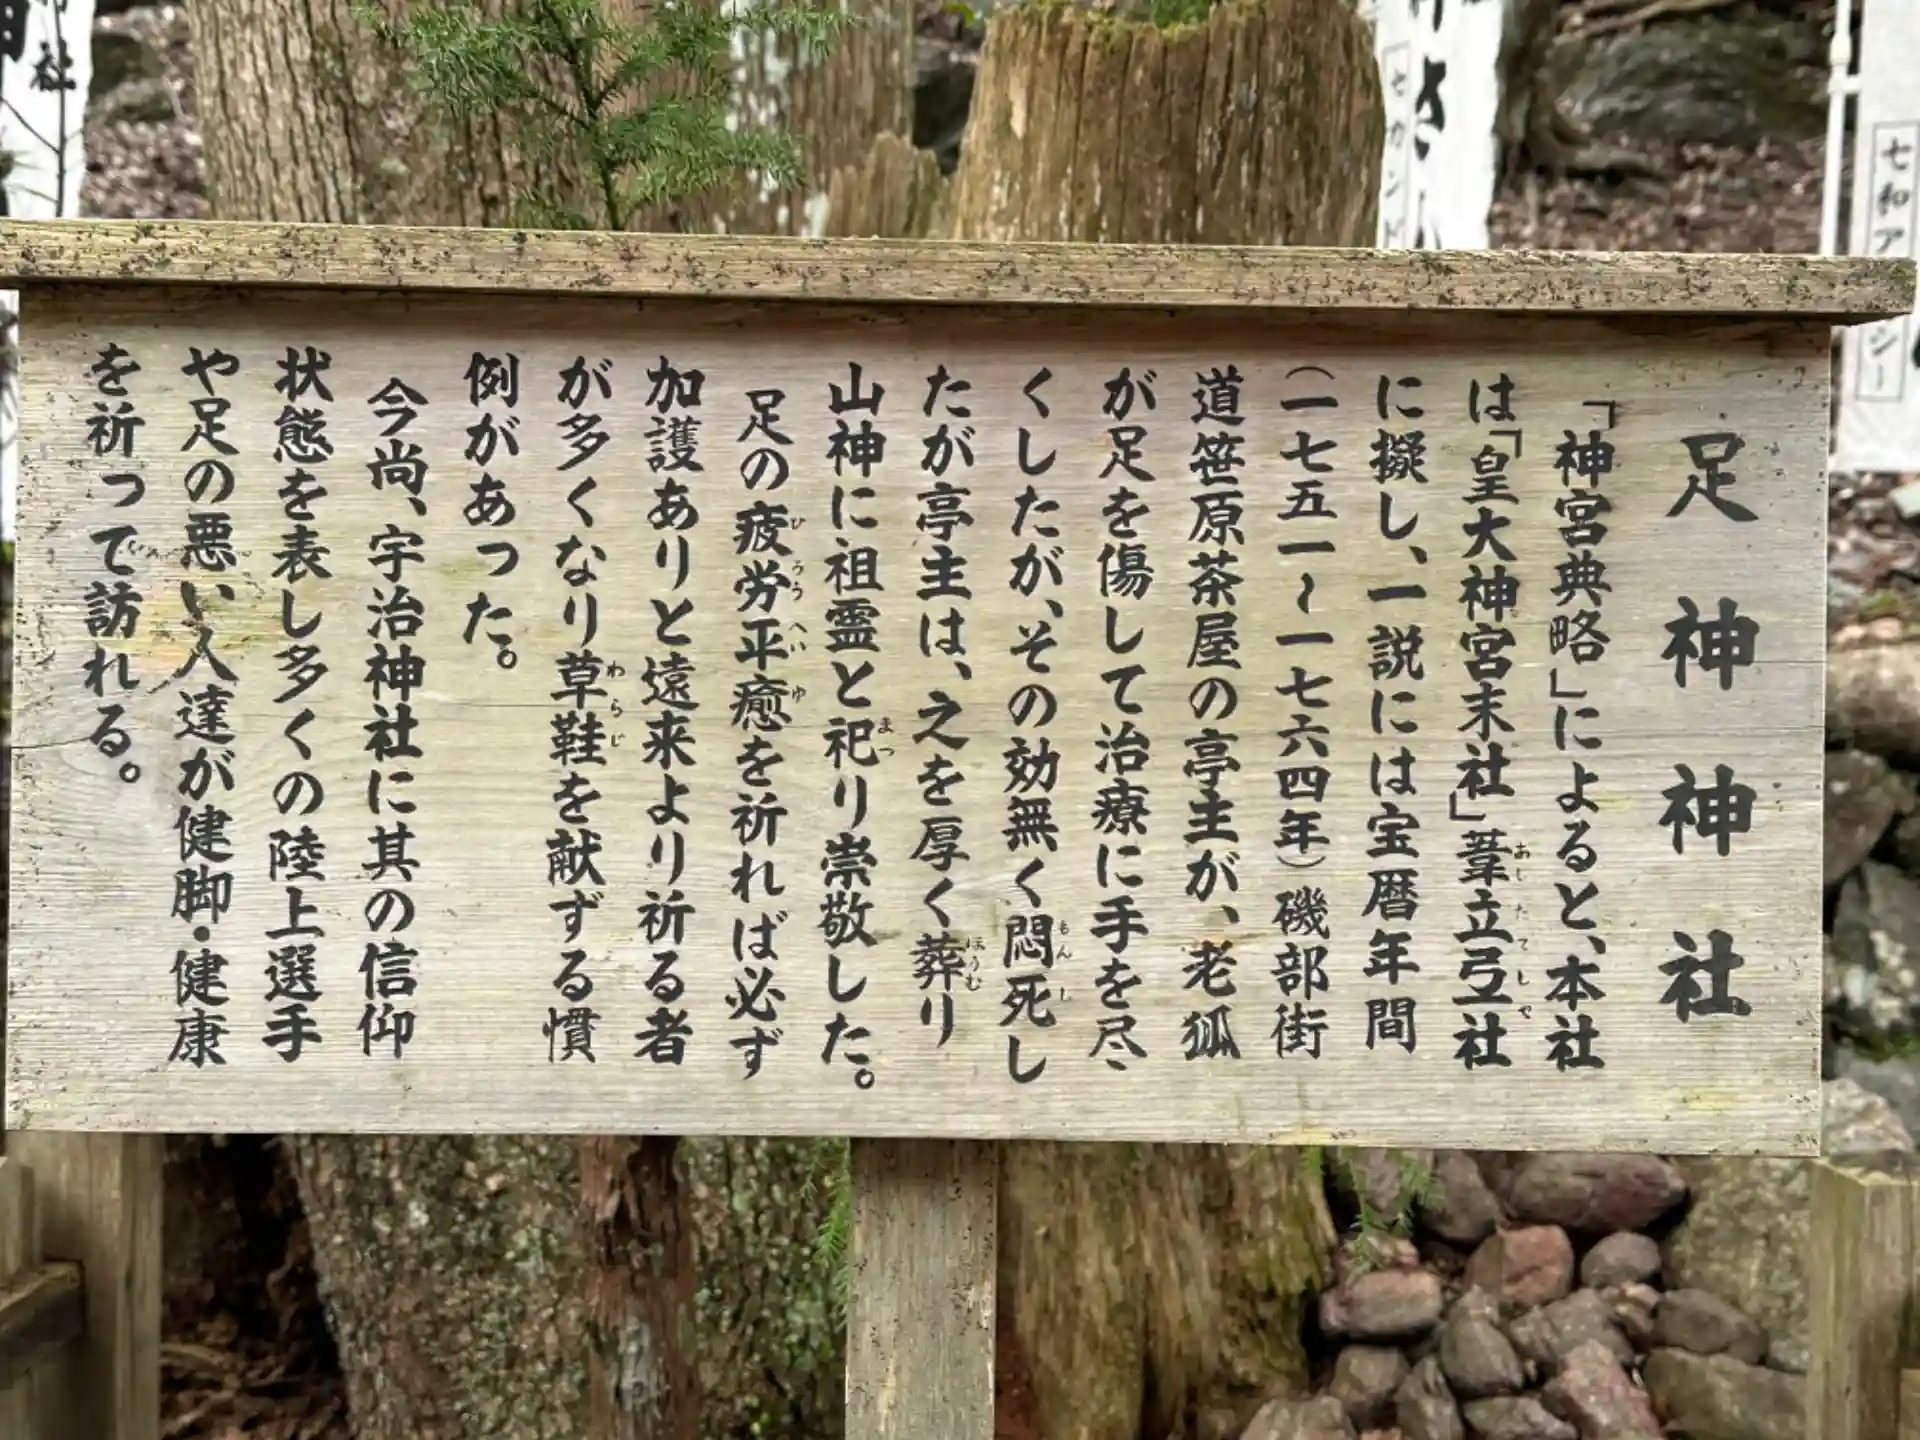 足神神社
「神宮典略」によると、本社
は「皇大神宮末社」葦立弖社
に擬し、一説には宝暦年間
(一七五一~一七六四年)磯部街
道笹原茶屋の亭主が、老狐
が足を傷して治療に手を尽
くしたが、その効無く悶死し
たが亭主は、之を厚く葬り
山神に祖霊と祀り崇敬した。
足の疲労平癒を祈れば必ず
加護ありと遠来より祈る者
が多くなり草鞋を献ずる慣
例があった。
今尚、宇治神社に其の信仰
状態を表し多くの陸上選手
や足の悪い人達が健脚・健康
を祈って訪れる。